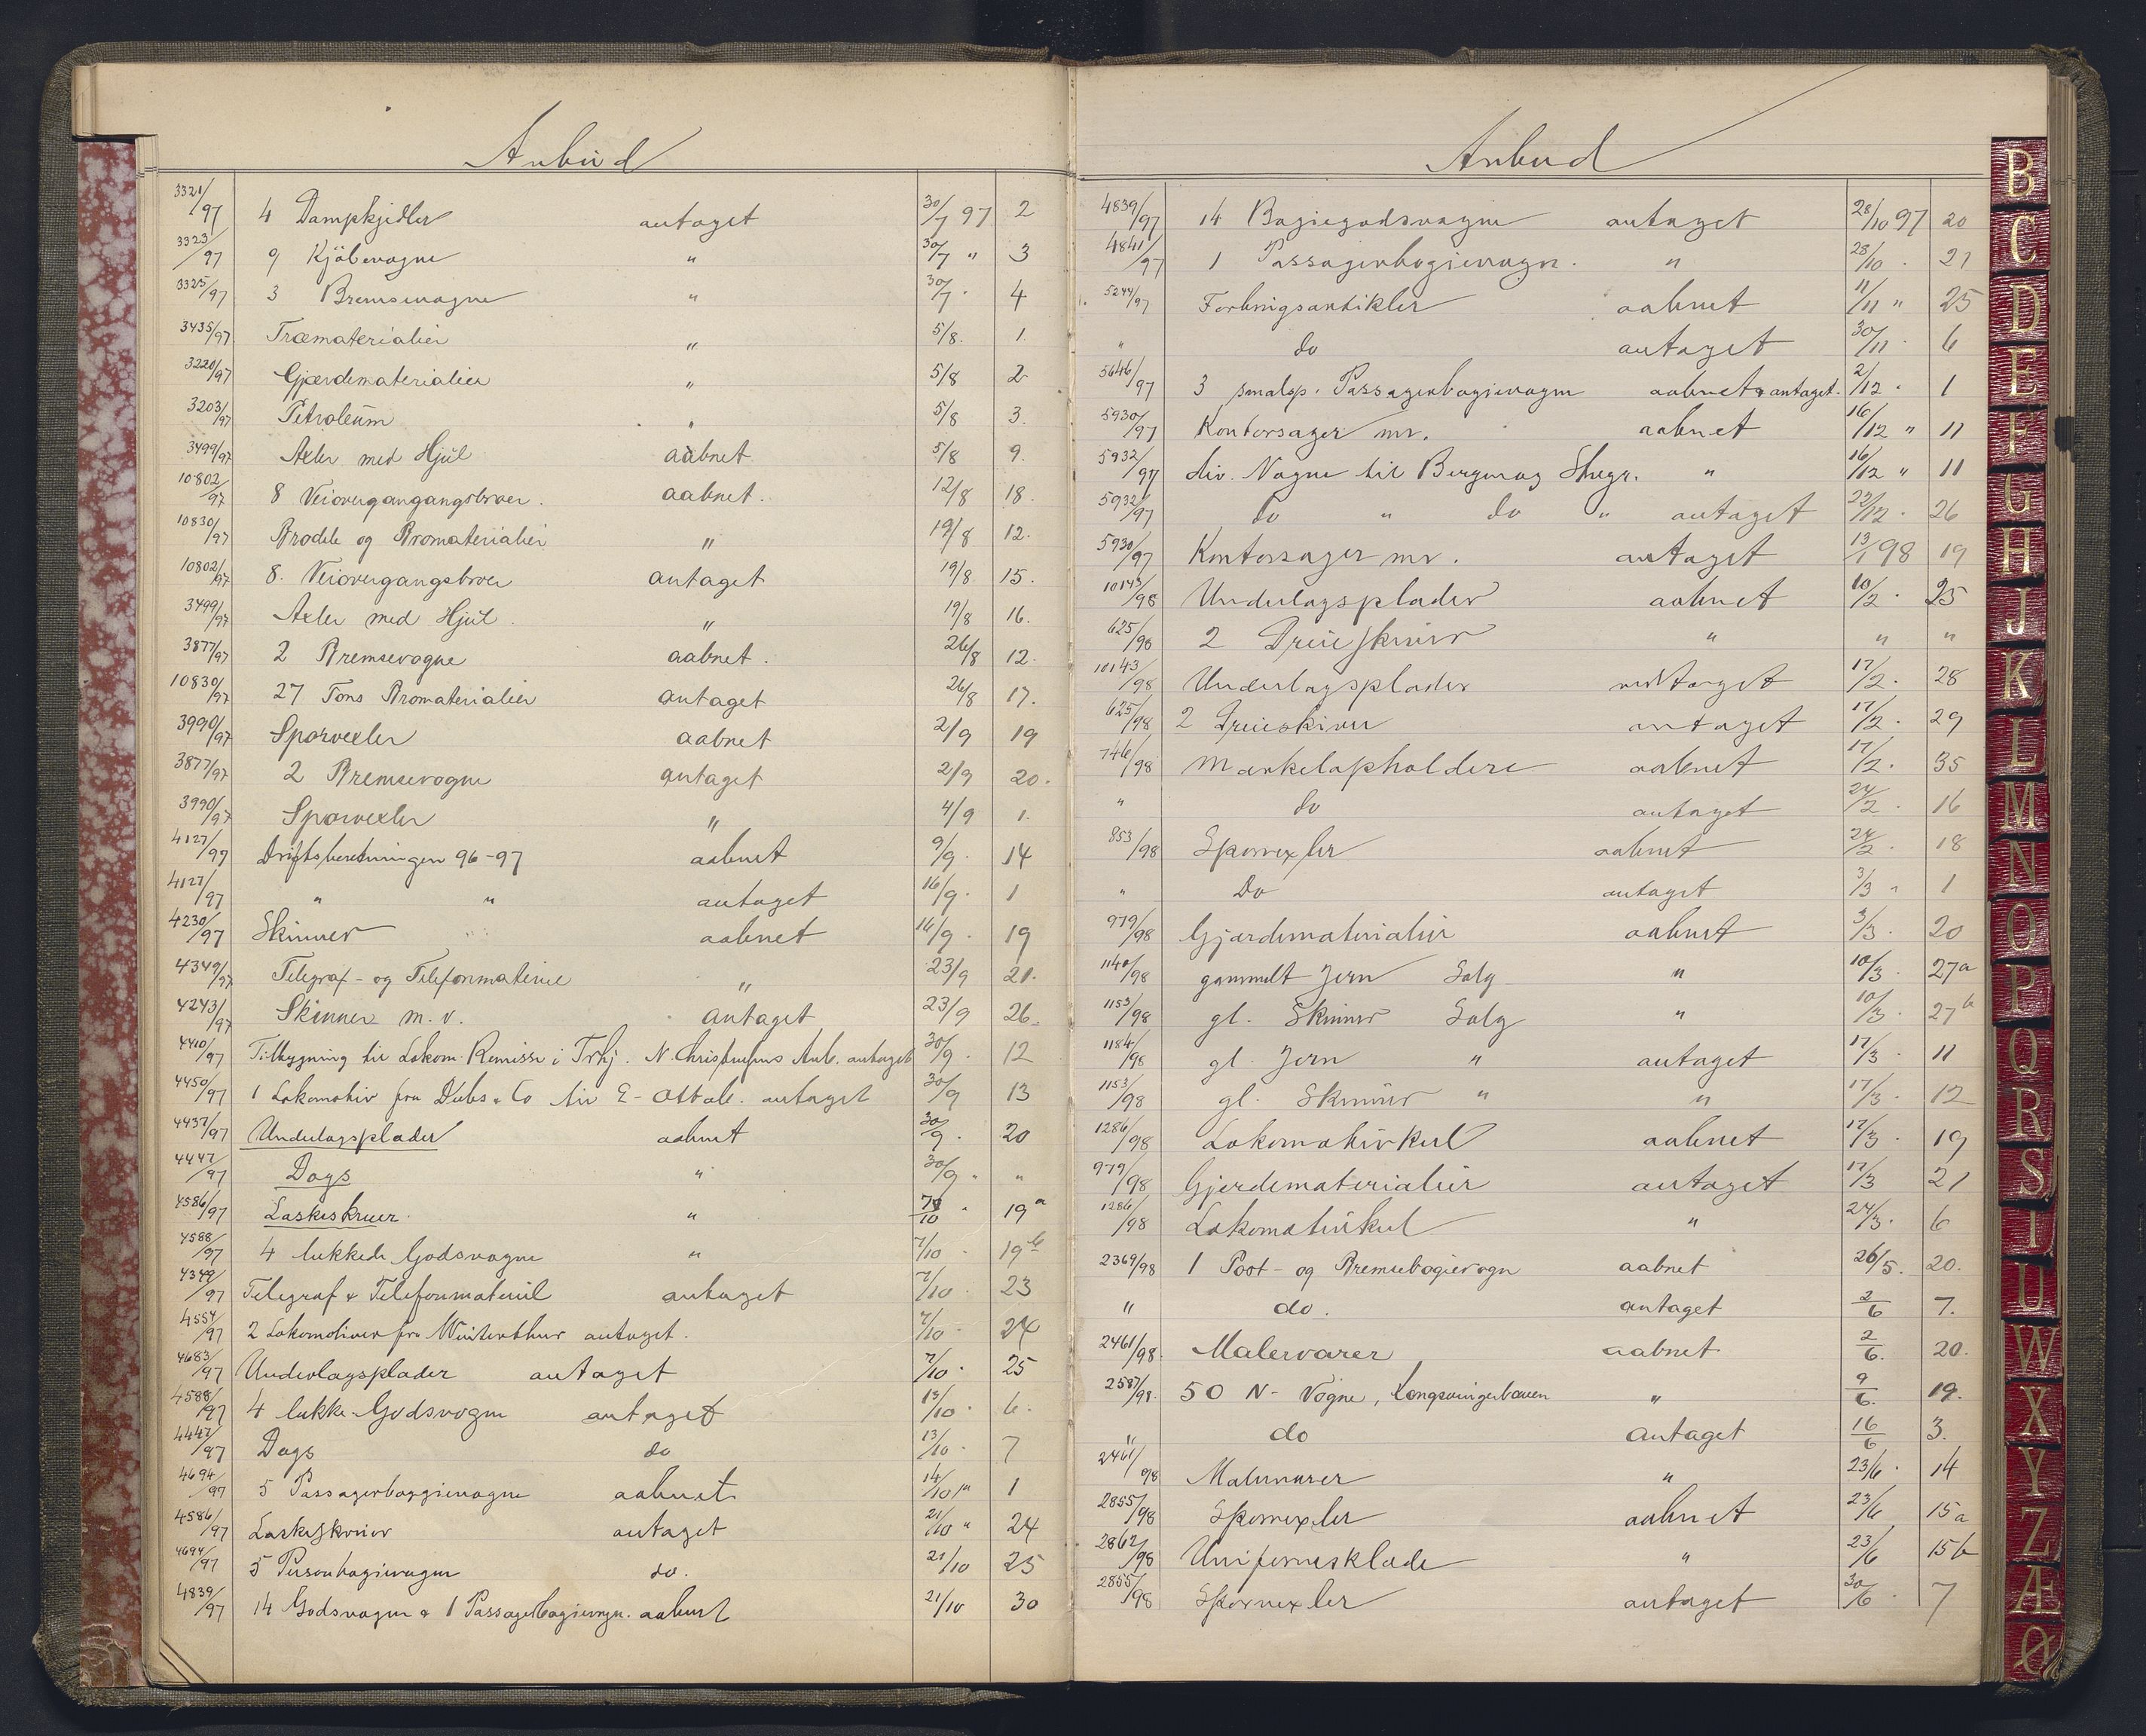 Anbud
3321/97 4 Dampkjedler antaget 30/7 97 2
3323/97 9 Kjölevogne " 30/7 " 3
3325/97 3 Bremsevogne " 30/7 · 4
3435/97 Træmaterialier " 5/8. 1.
3220/97 Gjærdematerialier " 5/8 2
3203/97 Petroleum " 5/8 3.
3499/97 Axler med Hjul aabnet 5/8 9.
10802/97 8 Veiovergangangsbroer. aabnet. 12/8 18.
10830/97 Brodele og Bromaterialier " 19/8 12.
10802/97 8. Veiovergangsbroer antaget 19/8 15.
3499/97 Axler med Hjul. " 19/8 16.
3877/97 2 Bremsevogne aabnet. 26/8 12.
10830/97 27 Tons Bromaterialier antaget 26/8 17.
3990/97 Sporvexler aabnet 2/9 19
3877/97 2 Bremsevogne antaget 2/9 20.
3990/97 Sporvexler " 4/9 1.
4127/97 Driftsberetningen 96-97 aabnet 9/9. 14
4127/97 " " antaget 16/9. 1
4230/97 Skinner aabnet 16/9. 19
4349/97 Telegraf- og Telefonmateriel " 23/9 21.
4243/97 Skinner m. v. antaget 23/9 26.
4410/97 Tilbygning til Lokom. Remisse i Trhj. N. Anb. antaget 30/9. 12
4450/97 1 Lokomotiv fra Dubs & Co til E- antaget 30/9 13
4437/97 Underlagsplader aabnet 30/9. 20
4447/97 Dogs " 30/9 " "
4586/97 Laskeskruer. " 7/10 " 19a
4588/97 4 lukkede Godsvogne " 7/10 · 19b
4349/97 Telegraf & Telefonmateriel antaget 7/10 · 23
4554/97 2 Lokomotiver fra Winterthur antaget. 7/10 · 24
4683/97 Underlagsplader antaget 7/10 · 25
4588/97 4 lukke Godsvogne antaget 13/10 · 6.
4447/97 Dogs do 13/10 · 7
4694/97 5 Passagerboggievogne aabnet 14/10 " 1
4586/97 Laskeskruer antaget 21/10 " 24
4694/97 5 Personbogievogne do. 21/10 25
4839/97 14 Godsvogne & 1 Passagerbogievogn. aabnet 21/10 30
Anbud
4839/97 14 Bogiegodsvogne antaget 28/10 97 20
4841/97 1 Passagerbogievogn. " 28/10 · 21
5244/97 Forbrugsartikler aabnet 11/11 " 25
" do antaget 30/11 · 6
5646/97 3 smalsp. Passagerbogievogne aabnet & antaget. 2/12 · 1
5930/97 Kontorsager mv. aabnet 16/12 " 11
5932/97 div. Vogne til " 16/12 " 11
5932/97 do " do " antaget 22/12 · 26
5930/97 Kontorsager mv. antaget 13/1 98 19
10143/98 Underlagsplader aabnet 10/2 · 25
625/98 2 Dreieskiver " " "
10143/98 Underlagsplader antaget 17/2. 28
625/98 2 Dreieskiver antaget 17/2 · 29
746/98 Mærkelapholdere aabnet 17/2. 35
" do antaget 24/2 · 16
853/98 Sporvexler aabnet 24/2 · 18
" Do antaget 3/3 " 1
979/98 Gjærdematerialier aabnet 3/3. 20
1140/98 gammelt Jern Salg " 10/3 · 27a
1153/98 gl. Skinner Salg " 10/3 · 27b
1184/98 gl. Jern " antaget 17/3 · 11
1153/98 gl. Skinner " " 17/3 · 12
1286/98 Lokomotivkul aabnet 17/3 · 19
979/98 Gjerdematerialier antaget 17/3 21
1286/98 Lokomotivkul " 24/3. 6
2369/98 1 Post- og Bremsebogievogn aabnet 26/5. 20.
" do. antaget 2/6 7.
2461/98. Malervarer aabnet 2/6. 20.
2587/98. 50 N- Vogne, Kongsvingerbanen " 9/6. 19.
" do antaget 16/6 3.
2461/98 Malervarer " 23/6 · 14
2855/98 Sporvexler aabnet 23/6 15a
2862/98 Uniformsklæde " 23/6 15b
2855/98 Sporvexler antaget 30/6 · 7
B
C
D
E
F
G
H
J
K
L
M
N
O
P
Q
R
S
T
U
W
X
Y
Z
Æ
Ø